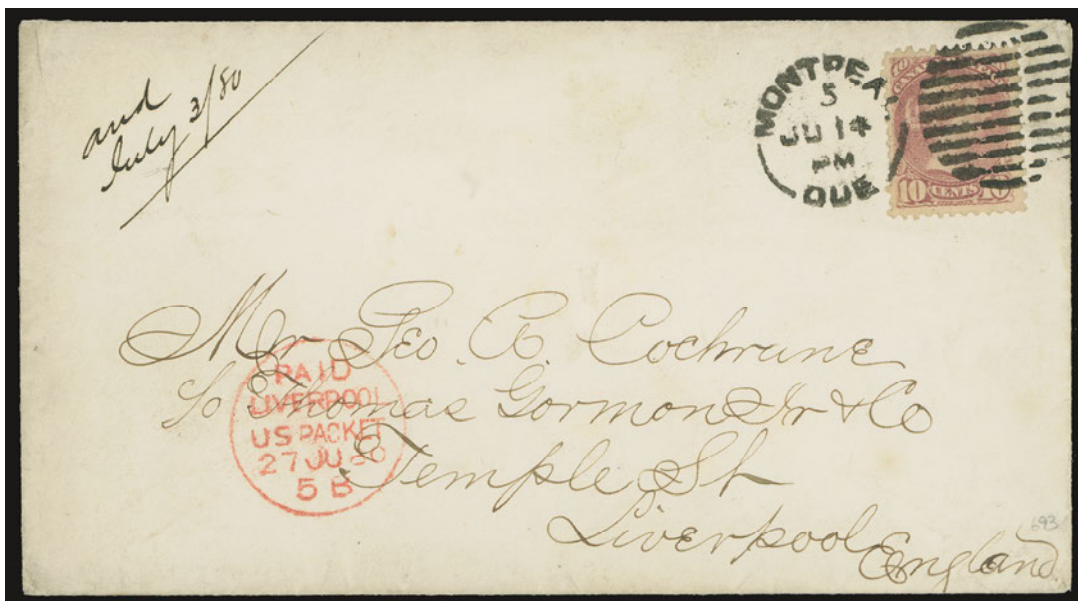 and
July 3/80
MONTREA
5
JU 14
PM
QUE
10 CENTS 10
Mr Geo. A. Cochrane
Thomas Gormon Jr & Co
Temple St
Liverpool
England
PAID
LIVERPOOL
US PACKET
27 JU 80
5 B
693